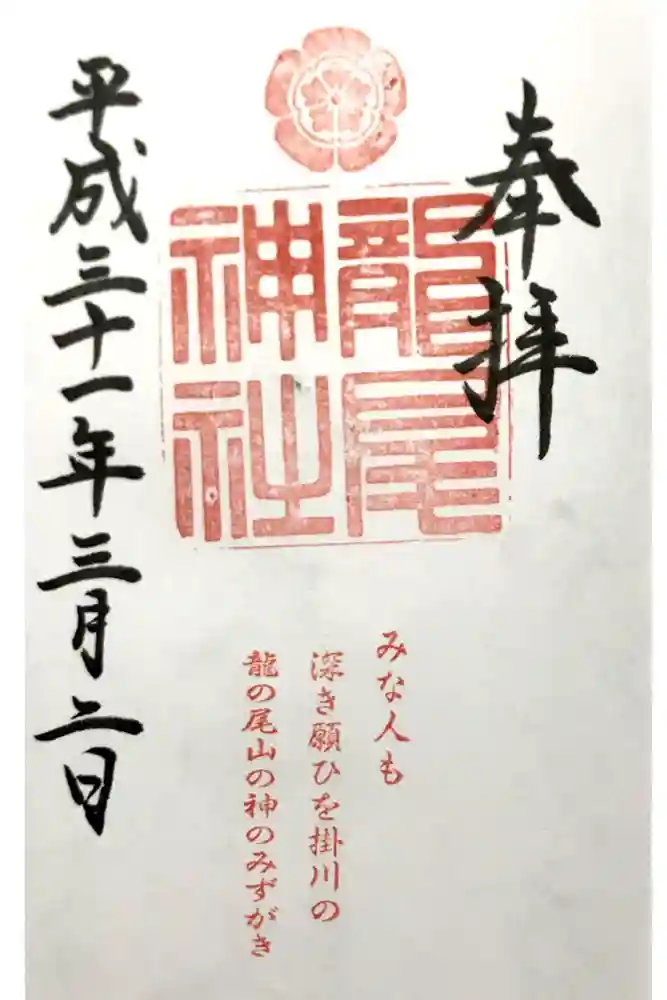 奉拝
龍尾神社
みな人も
深き願ひを掛川の
龍の尾山の神のみずがき
平成三十一年三月二日